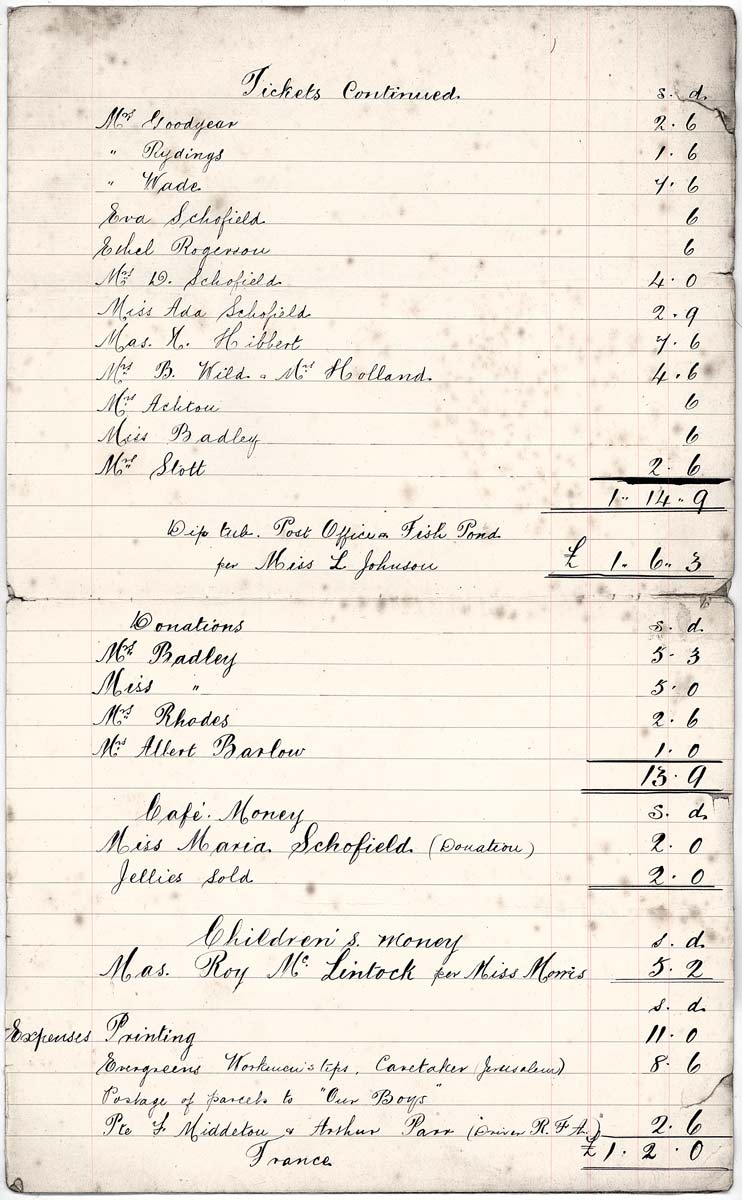 Tickets Continued. s. d.
Mrs Goodyear 2. 6
" Rydings 1. 6
" Wade 7. 6
Eva Schofield 6
Ethel Rogerson 6
Mrs D. Schofield 4. 0
Miss Ada Schofield 2. 9
Mas. H. Hibbert 7. 6
Mrs B. Wild & Mrs Holland. 4. 6
Mrs Ashton 6
Miss Badley 6
Mrs Slott 2. 6
1" 14" 9
Dip tub. Post Office & Fish Pond
per Miss L Johnson £ 1" 6" 3
Donations s. d.
Mrs Badley 5. 3
Miss " 5. 0
Mrs Rhodes 2. 6
Mrs Albert Barlow 1. 0
13. 9
Café. Money s. d.
Miss Maria Schofield (Donation) 2. 0
Jellies sold 2. 0
Children's. money s. d.
Mas. Roy Mc Lintock per Miss Morris 5. 2
s. d.
Expenses Printing 11. 0
Evergreens Workmen's tips, Caretaker (Jerusalem) 8. 6
Postage of parcels to "Our Boys"
Pte F. Middleton & Arthur Parr (Driver R. F. A.) 2. 6
France £ 1. 2. 0